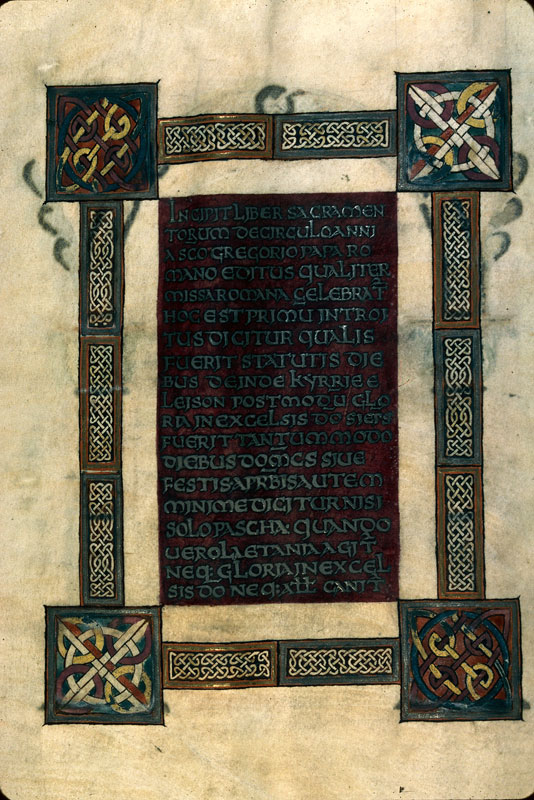 INCIPIT LIBER SACRAMEN
TORUM DE CIRCULO ANNI
A SCO GREGORIO PAPA RO
MANO EDITUS QUALITER
MISSA ROMANA CELEBRAT̄
HOC EST PRIMU INTROI
TUS DICITUR QUALIS
FUERIT STATUTIS DIE
BUS DEINDE KYRRIE E
LEISON POSTMODU GLO
RIA IN EXCELSIS DO SI EPS
FUERIT TANTUMMODO
DIEBUS DOMCS SIUE
FESTIS A PRBIS AUTEM
MINIME DICITUR NISI
SOLO PASCHA: QUANDO
UERO LAETANIA AGIT̄
NEQ; GLORIA IN EXCEL
SIS DO NEQ: ALL CANIT̄